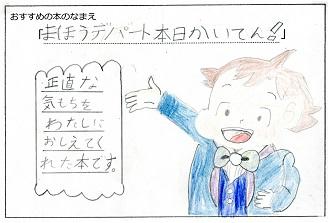 おすすめの本のなまえ
「まほうデパート本日かいてん!!」
正直な
気もちを
わたしに
おしえてく
れた本です。